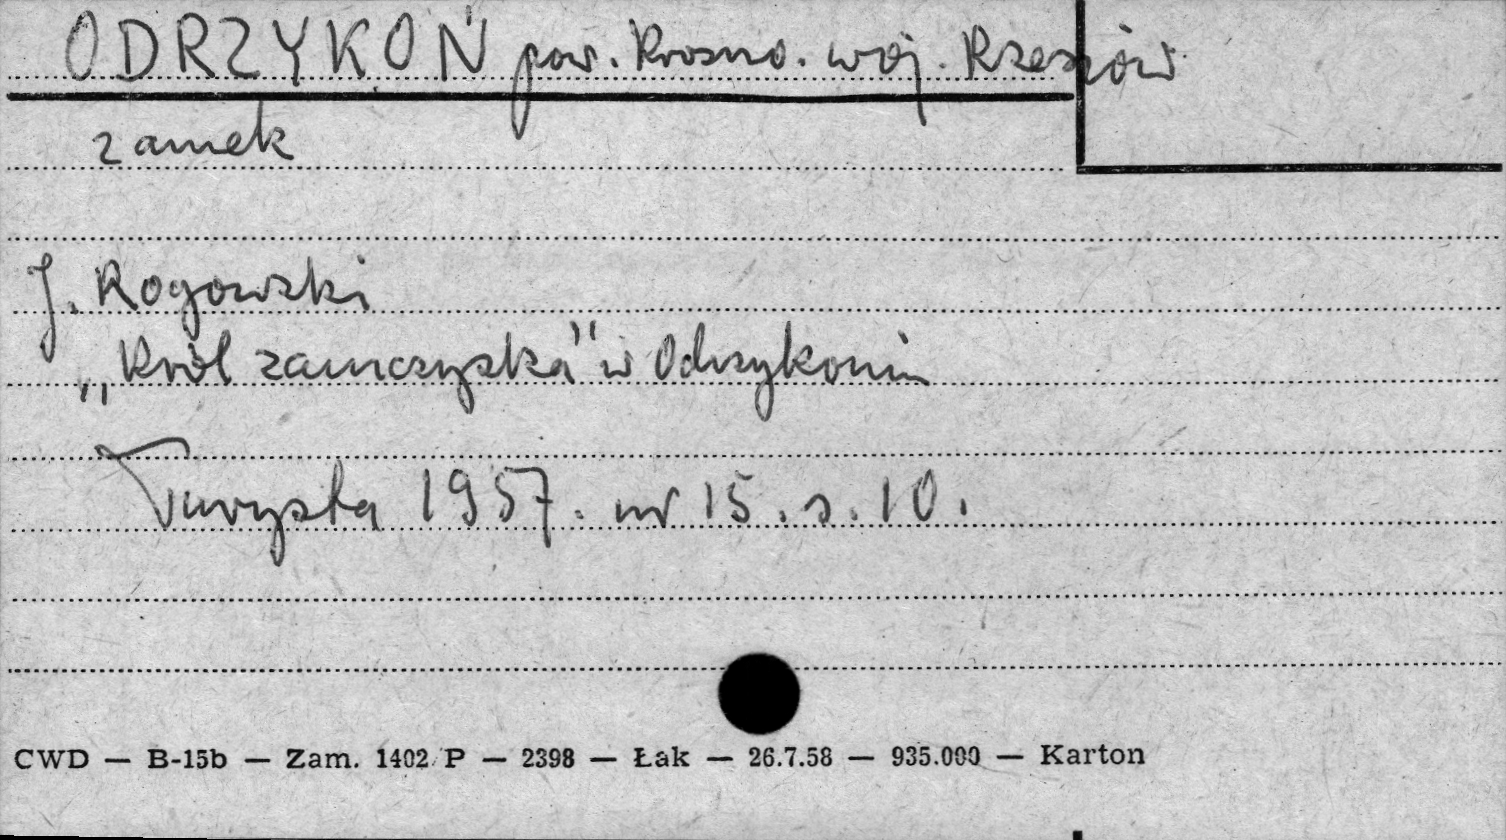 ODRZYKOŃ pow. Krosno. woj. Rzeszów
zamek
J. Rogowski
„Król zamczyska" w Odrzykoniu
Turysta 1957. nr 15. s. 10.
CWD — B-15b — Zam. 1402/P — 2398 — Łak — 26.7.58 — 935.000 — Karton